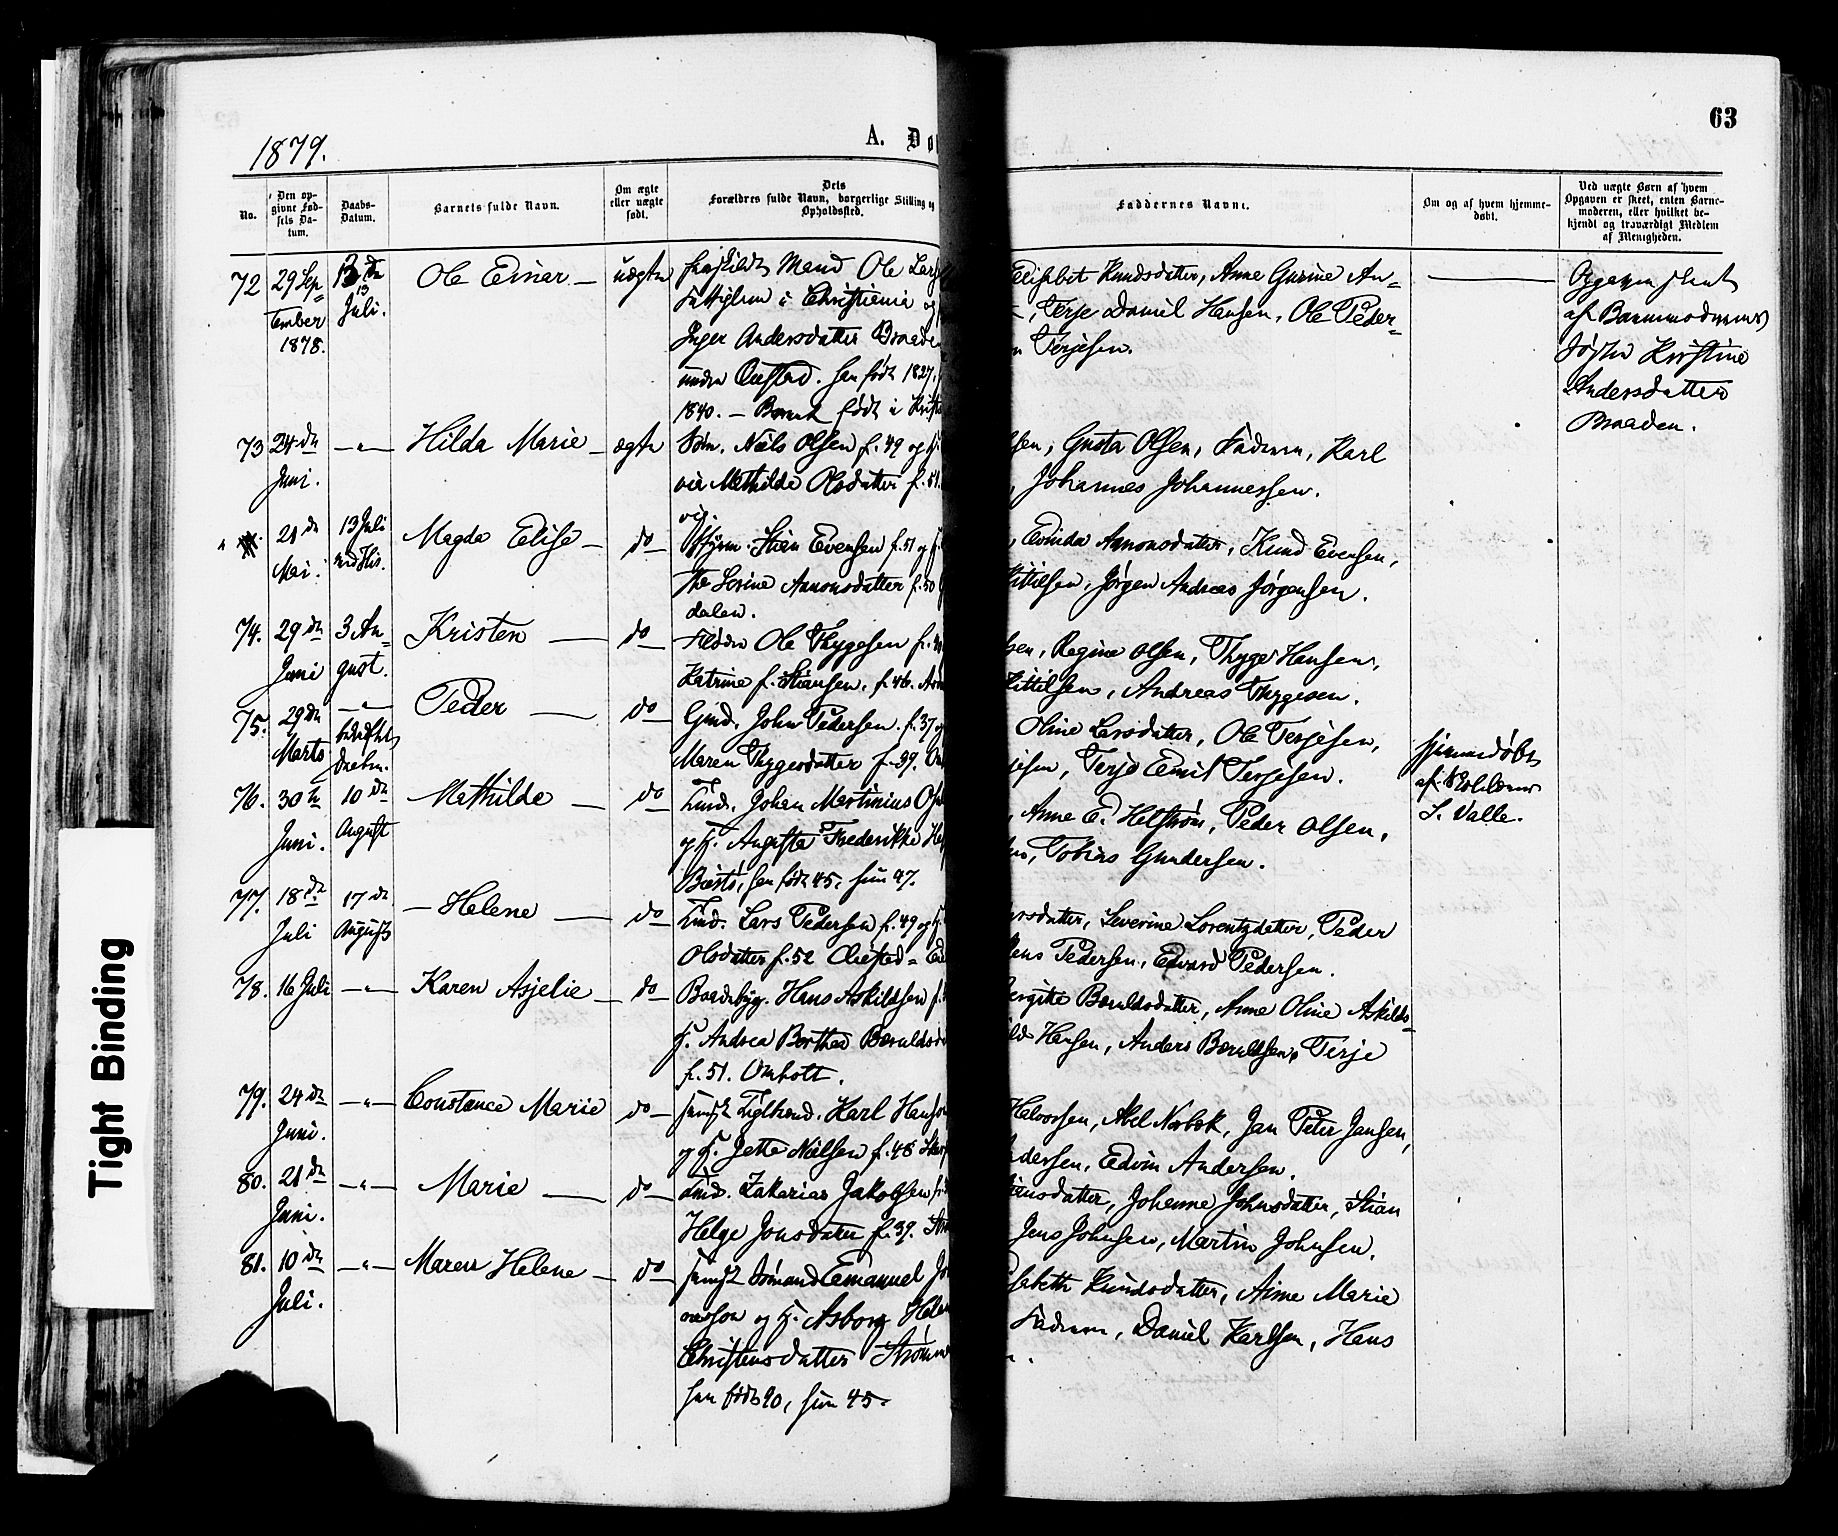 63
1879.
A. Dø
No.
Den op-
givne Fød-
sels Da-
tum.
Daabs-
Datum.
Barnets fulde Navn.
Om ægte
eller uægte
født.
Dets
Forældres fulde Navn, borgerlige Stilling og
Opholdssted.
Faddernes Navne.
Om og af hvem hjemme-
døbt.
Ved uægte Børn af hvem
Opgaven er skeet, enten Barne-
moderen, eller hvilket be-
kjendt og troværdigt Medlem
af Menigheden.
72 29 Sep
tember
1878.
13 de
Juli.
Ole Einar — uægte
fraskildt Mand Ole Lars
i Christiania og
Inger Andersdatter Braaden
under Østad. han født 1827,
1840. — Barnet født i Krist
Elisabet Knudsdatter, Anne Gurine An-
, Terje Daniel Hansen, Ole Peder-
n Terjesen.
Opgaven skeet
af Barnemoderens
Søster Kristine
Andersdatter
Braaden.
73 24 de
Juni.
—"—
Hilda Marie — ægte
Søm. Niels Olsen f. 49 og H.
Mathilde Olsdatter f. 51.
sen, Gusta Olsen, Faderen, Karl
, Johannes Johannessen.
21 de
Mai.
13 Juli
Magda Elise — do —
Stian Evensen f. 51 og H.
Sorine Aanonsdatter f. 50
dalen.
, Edvida Aanonsdatter, Knud Evensen,
Kittilsen, Jørgen Andreas Jørgensen.
74. 29 de
Juni
3 Au-
gust.
Kristen — do —
Ole Thygesen f.
Katrine f. Stiansen, f. 46.
sen, Regine Olsen, Thyge Hansen,
Kittilsen, Andreas Thygesen.
75. 29 de
Marts
—"—
Peder — do —
Gmd. John Pedersen f. 37 og
Maren Thygesdatter f. 39.
Oline Larsdatter, Ole Terjesen,
jesen, Terje Emil Terjesen.
hjemmedøbt
af
S. Valle.
76. 30 te
Juni.
10 de
August
Mathilde — do —
Ind. Johan Martinius
og H. Augusta Frederikke
han født 45, hun 47.
, Anne E. Helstrøm, Peder Olsen,
Tobias Gundersen.
77. 18 de
Juli
17 de
August
— Helene — do —
Ind. Lars Pedersen f. 49 og H.
Olsdatter f. 52 Østad
arsdatter, Severine Lorentzdatter, Peder
Jens Pedersen, Edvard Pedersen.
78. 16 Juli —"—
Karen Asjelie — do —
Baadsbyg. Hans Askildsen f.
H. Andrea Berthea Bæruldsda
f. 51. Omholt.
ergitte Bæruldsdatter, Anne Oline Askilds-
Hansen, Anders Bæruldsen, Terje
79. 24 de
Juni.
—"—
Constance Marie do —
Karl Hans
og H. Jette Nielsen f. 48
Halvorsen, Abel Norbek, Jan Peter Jansen,
ndersen, Edvin Andersen.
80. 21 de
Juni.
—"—
Marie — do —
Ind. Zakarias Jakobsen f.
Helge Jonsdatter f. 39.
iansdatter, Johanne Johnsdatter, Stian
Jens Johnsen, Martin Johnsen.
81. 10 de
Juli.
—"—
Maren Helene — do —
Sømand Emanuel
og H. Asborg Helen
Christensdatter Strømm
han født 40, hun 45.
isabeth Knudsdatter, Anne Marie
Faderen, Daniel Karlsen, Hans
Tight Binding